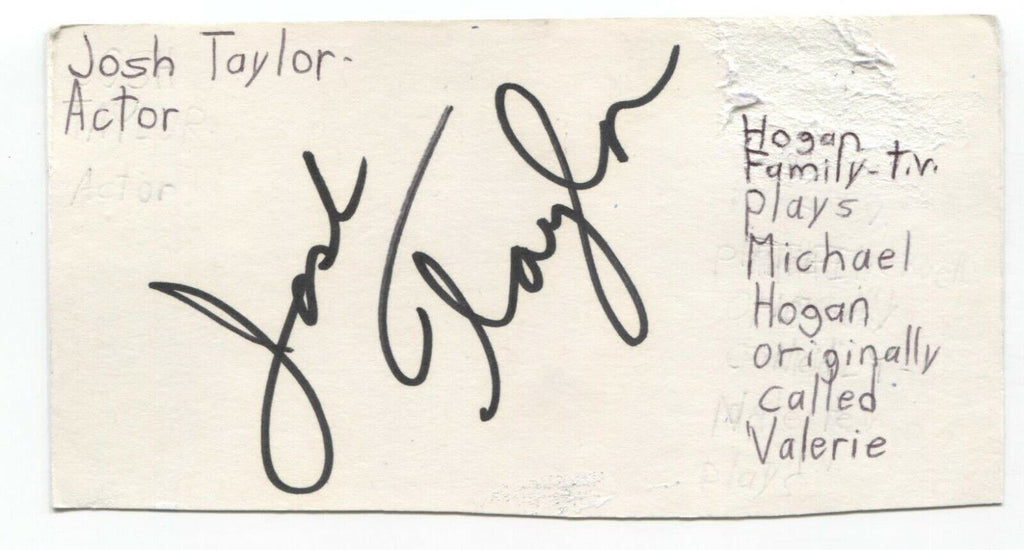 Josh Taylor-
Actor
Actor
Josh Taylor
Hogan
Family-t.v.
plays
Michael
Hogan
originally
called
Valerie